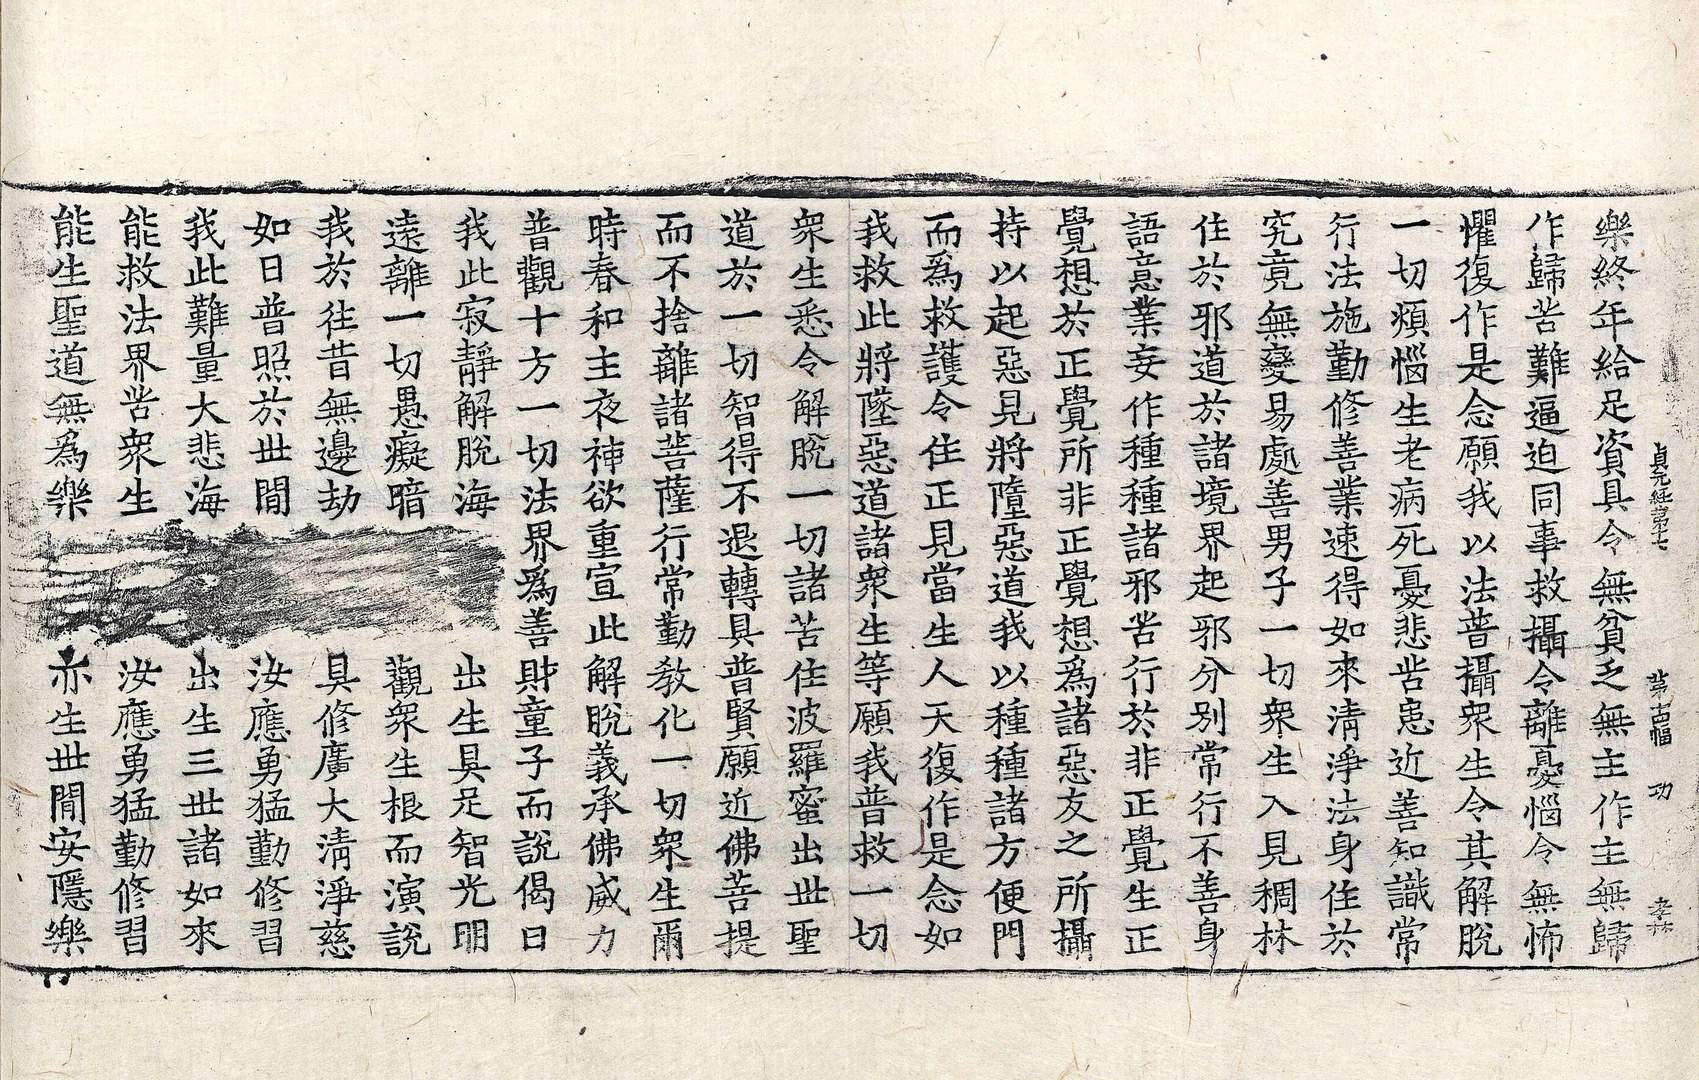 貞元經第十七 第古幅 功 孝林
樂終年給足資具令無貧乏無主作主無歸
作歸苦難逼迫同事救攝令離憂惱令無怖
懼復作是念願我以法普攝眾生令其解脫
一切煩惱生老病死憂悲苦患近善知識常
行法施勤修善業速得如來清淨法身住於
究竟無變易處善男子一切眾生入見稠林
住於邪道於諸境界起邪分別常行不善身
語意業妄作種種諸邪苦行於非正覺生正
覺想於正覺所非正覺想為諸惡友之所攝
持以起惡見將墮惡道我以種種諸方便門
而為救護令住正見當生人天復作是念如
我救此將墜惡道諸眾生等願我普救一切
眾生悉令解脫一切諸苦住波羅蜜出世聖
道於一切智得不退轉具普賢願近佛菩提
而不捨離諸菩薩行常勤教化一切眾生爾
時春和主夜神欲重宣此解脫義承佛威力
普觀十方一切法界為善財童子而說偈曰
我此寂靜解脫海 出生具足智光明
遠離一切愚癡暗 觀眾生根而演說
我於往昔無邊劫 具修廣大清淨慈
如日普照於世間 汝應勇猛勤修習
我此難量大悲海 出生三世諸如來
能救法界苦眾生 汝應勇猛勤修習
能生聖道無為樂 亦生世間安隱樂